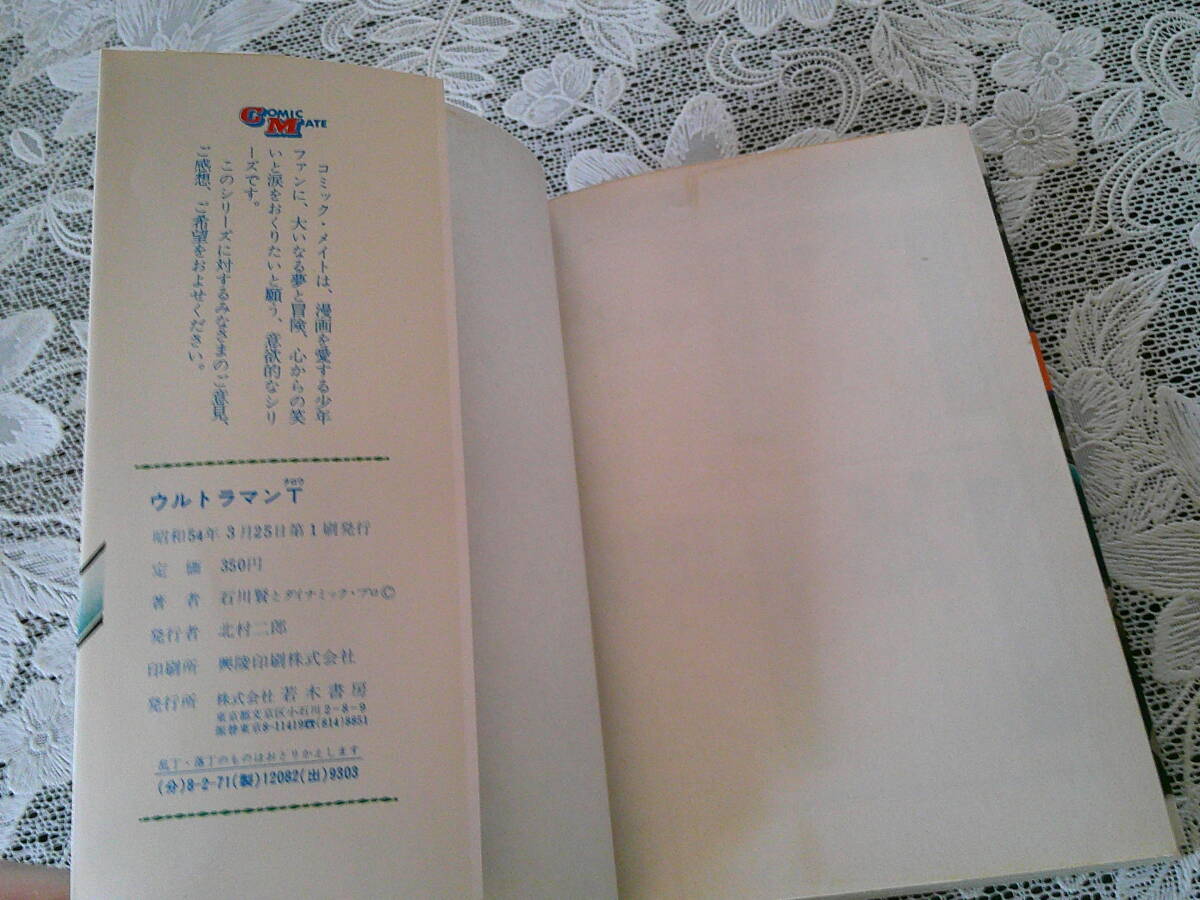 COMIC
MATE
コミック・メイトは、漫画を愛する少年
ファンに、大いなる夢と冒険、心からの笑
いと涙をおくりたいと願う、意欲的なシリ
ーズです。
このシリーズに対するみなさまのご意見、
ご感想、ご希望をおよせください。
タロウ
ウルトラマンT
昭和54年3月25日第1刷発行
定価 350円
著者 石川賢とダイナミック・プロ©
発行者 北村二郎
印刷所 興陵印刷株式会社
発行所 株式会社 若木書房
東京都文京区小石川2-8-9
振替東京8-11419☎(814)8851
乱丁・落丁のものはおとりかえします
(分)8-2-71(製)12082(出)9303